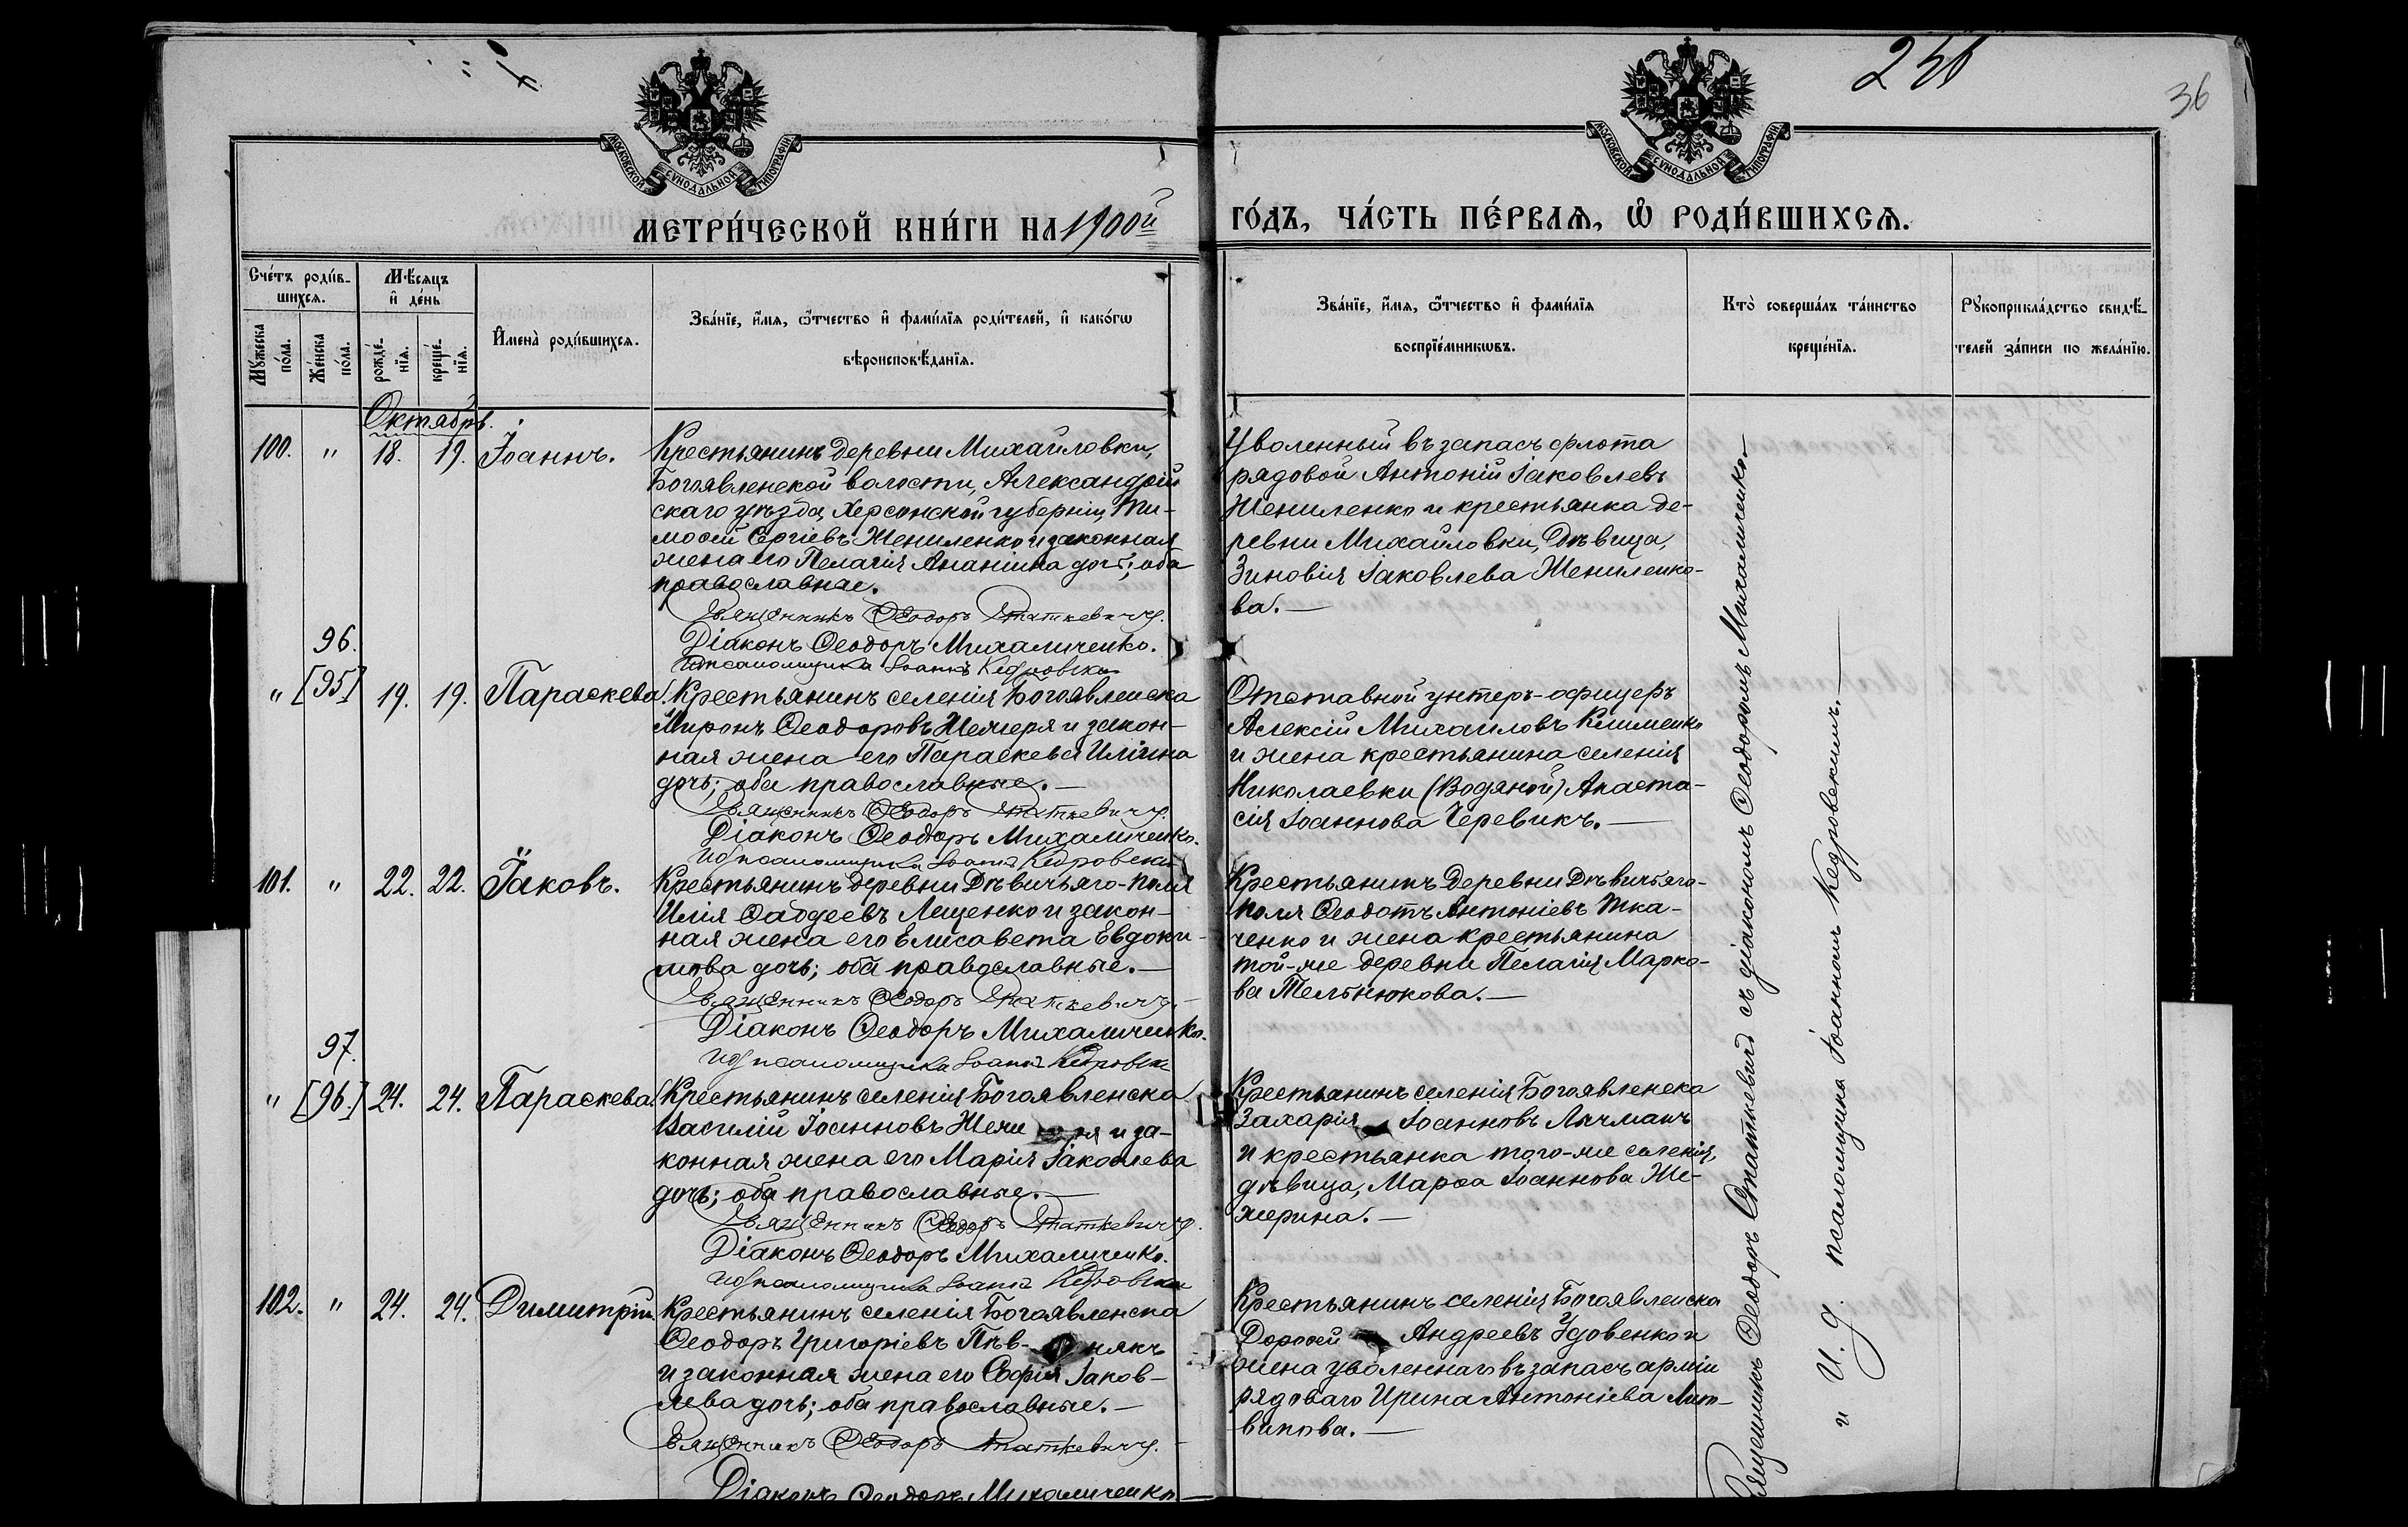 256
36
МОСКОВСКОЙ СѴНОДАЛЬНОЙ ТИПОГРАФІИ
МОСКОВСКОЙ СѴНОДАЛЬНОЙ ТИПОГРАФІИ
МЕТРИ́ЧЕСКОЙ КНИ́ГИ НА 1900й ГО́ДЪ, ЧА́СТЬ ПЕ́РВАѦ, Ѽ РОДИ́ВШИХСѦ.
Сче́тъ роди́в-
шихсѧ.
Мꙋ́жеска по́ла.
Же́нска по́ла.
Мѣ́сѧцъ
и҆ де́нь
рожде́-нїѧ.
креще́-нїѧ.
И҆мена̀ роди́вшихсѧ.
Зва́нїе, и҆́мѧ, ѻ҆́тчество и҆ фами́лїѧ роди́телей, и҆ како́гѡ
вѣроисповѣ́данїѧ.
Зва́нїе, и҆́мѧ, ѻ҆́тчество и҆ фами́лїѧ
воспрїе́мникѡвъ.
Кто̀ соверша́лъ та́инство
креще́нїѧ.
Рꙋкоприкла́дство свидѣ́-
телей за́писи по жела́нїю.
Октябрь.
100. " 18. 19. Іоаннъ.
Крестьянинъ деревни Михайловки,
Богоявленской волости, Александрій
скаго уѣзда, Херсонской губерніи, Ти-
моѳей Сергіевъ Жениленко и законная
жена его Пелагія Ананіина дочь; оба
православные.
Священникъ Ѳеодоръ Статкевичъ.
Діаконъ Ѳеодоръ Михаличенко.
И д псаломщика Іоаннъ Кедровскій
Уволенный въ запасъ флота
рядовой Антоній Іаковлевъ
Жениленко и крестьянка де-
ревни Михайловки, дѣвица,
Зиновія Іаковлева Жениленко-
ва.—
96.
" [95] 19. 19. Параскева.
Крестьянинъ селенія Богоявленска
Миронъ Ѳеодоровъ Жежеря и закон-
ная жена его Параскева Иліина
дочь; оба православные.—
Священникъ Ѳеодоръ Статкевичъ.
Діаконъ Ѳеодоръ Михаличенко.
И д псаломщика Іоаннъ Кедровскій
Отставной унтеръ-офицеръ
Алексій Михаиловъ Клименко
и жена крестьянина селенія
Николаевки (Водяной) Анаста-
сія Іоаннова Черевикъ.—
101. " 22. 22. Іаковъ.
Крестьянинъ деревни Дѣвичьяго-поля
Илія Ѳаддеевъ Лещенко и закон-
ная жена его Елисавета Евдоки-
мова дочь; оба православные.—
Священникъ Ѳеодоръ Статкевичъ.
Діаконъ Ѳеодоръ Михаличенко.
И д псаломщика Іоаннъ Кедровскій
Крестьянинъ деревни Дѣвичьяго-
поля Ѳеодотъ Антоніевъ Тка-
ченко и жена крестьянина
той-же деревни Пелагія Марко-
ва Тельнюкова.—
97.
" [96.] 24. 24. Параскева.
Крестьянинъ селенія Богоявленска
Василій Іоанновъ Же ря и за-
конная жена его Марія Іаковлева
дочь; оба православные.—
Священникъ Ѳеодоръ Статкевичъ.
Діаконъ Ѳеодоръ Михаличенко.
И д псаломщика Іоаннъ Кедровскій
Крестьянинъ селенія Богоявленска
Захарія Іоанновъ Личманъ
и крестьянка того-же селенія,
дѣвица, Марѳа Іоаннова Же-
жерина.—
102. " 24. 24. Димитрій.
Крестьянинъ селенія Богоявленска
Ѳеодоръ Григоріевъ Пѣв- някъ
и законная жена его Софія Іаков-
лева дочь; оба православные.—
Священникъ Ѳеодоръ Статкевичъ.
Діаконъ Ѳеодоръ Михаличенко
Крестьянинъ селенія Богоявленска
Дороѳей Андреевъ Удовенко и
жена уволеннаго въ запасъ арміи
рядоваго Ирина Антоніева Лит-
винова.—
Священникъ Ѳеодоръ Статкевичъ съ діакономъ Ѳеодоромъ Михаличенко—
и И. д. псаломщика Іоанномъ Кедровскимъ.—